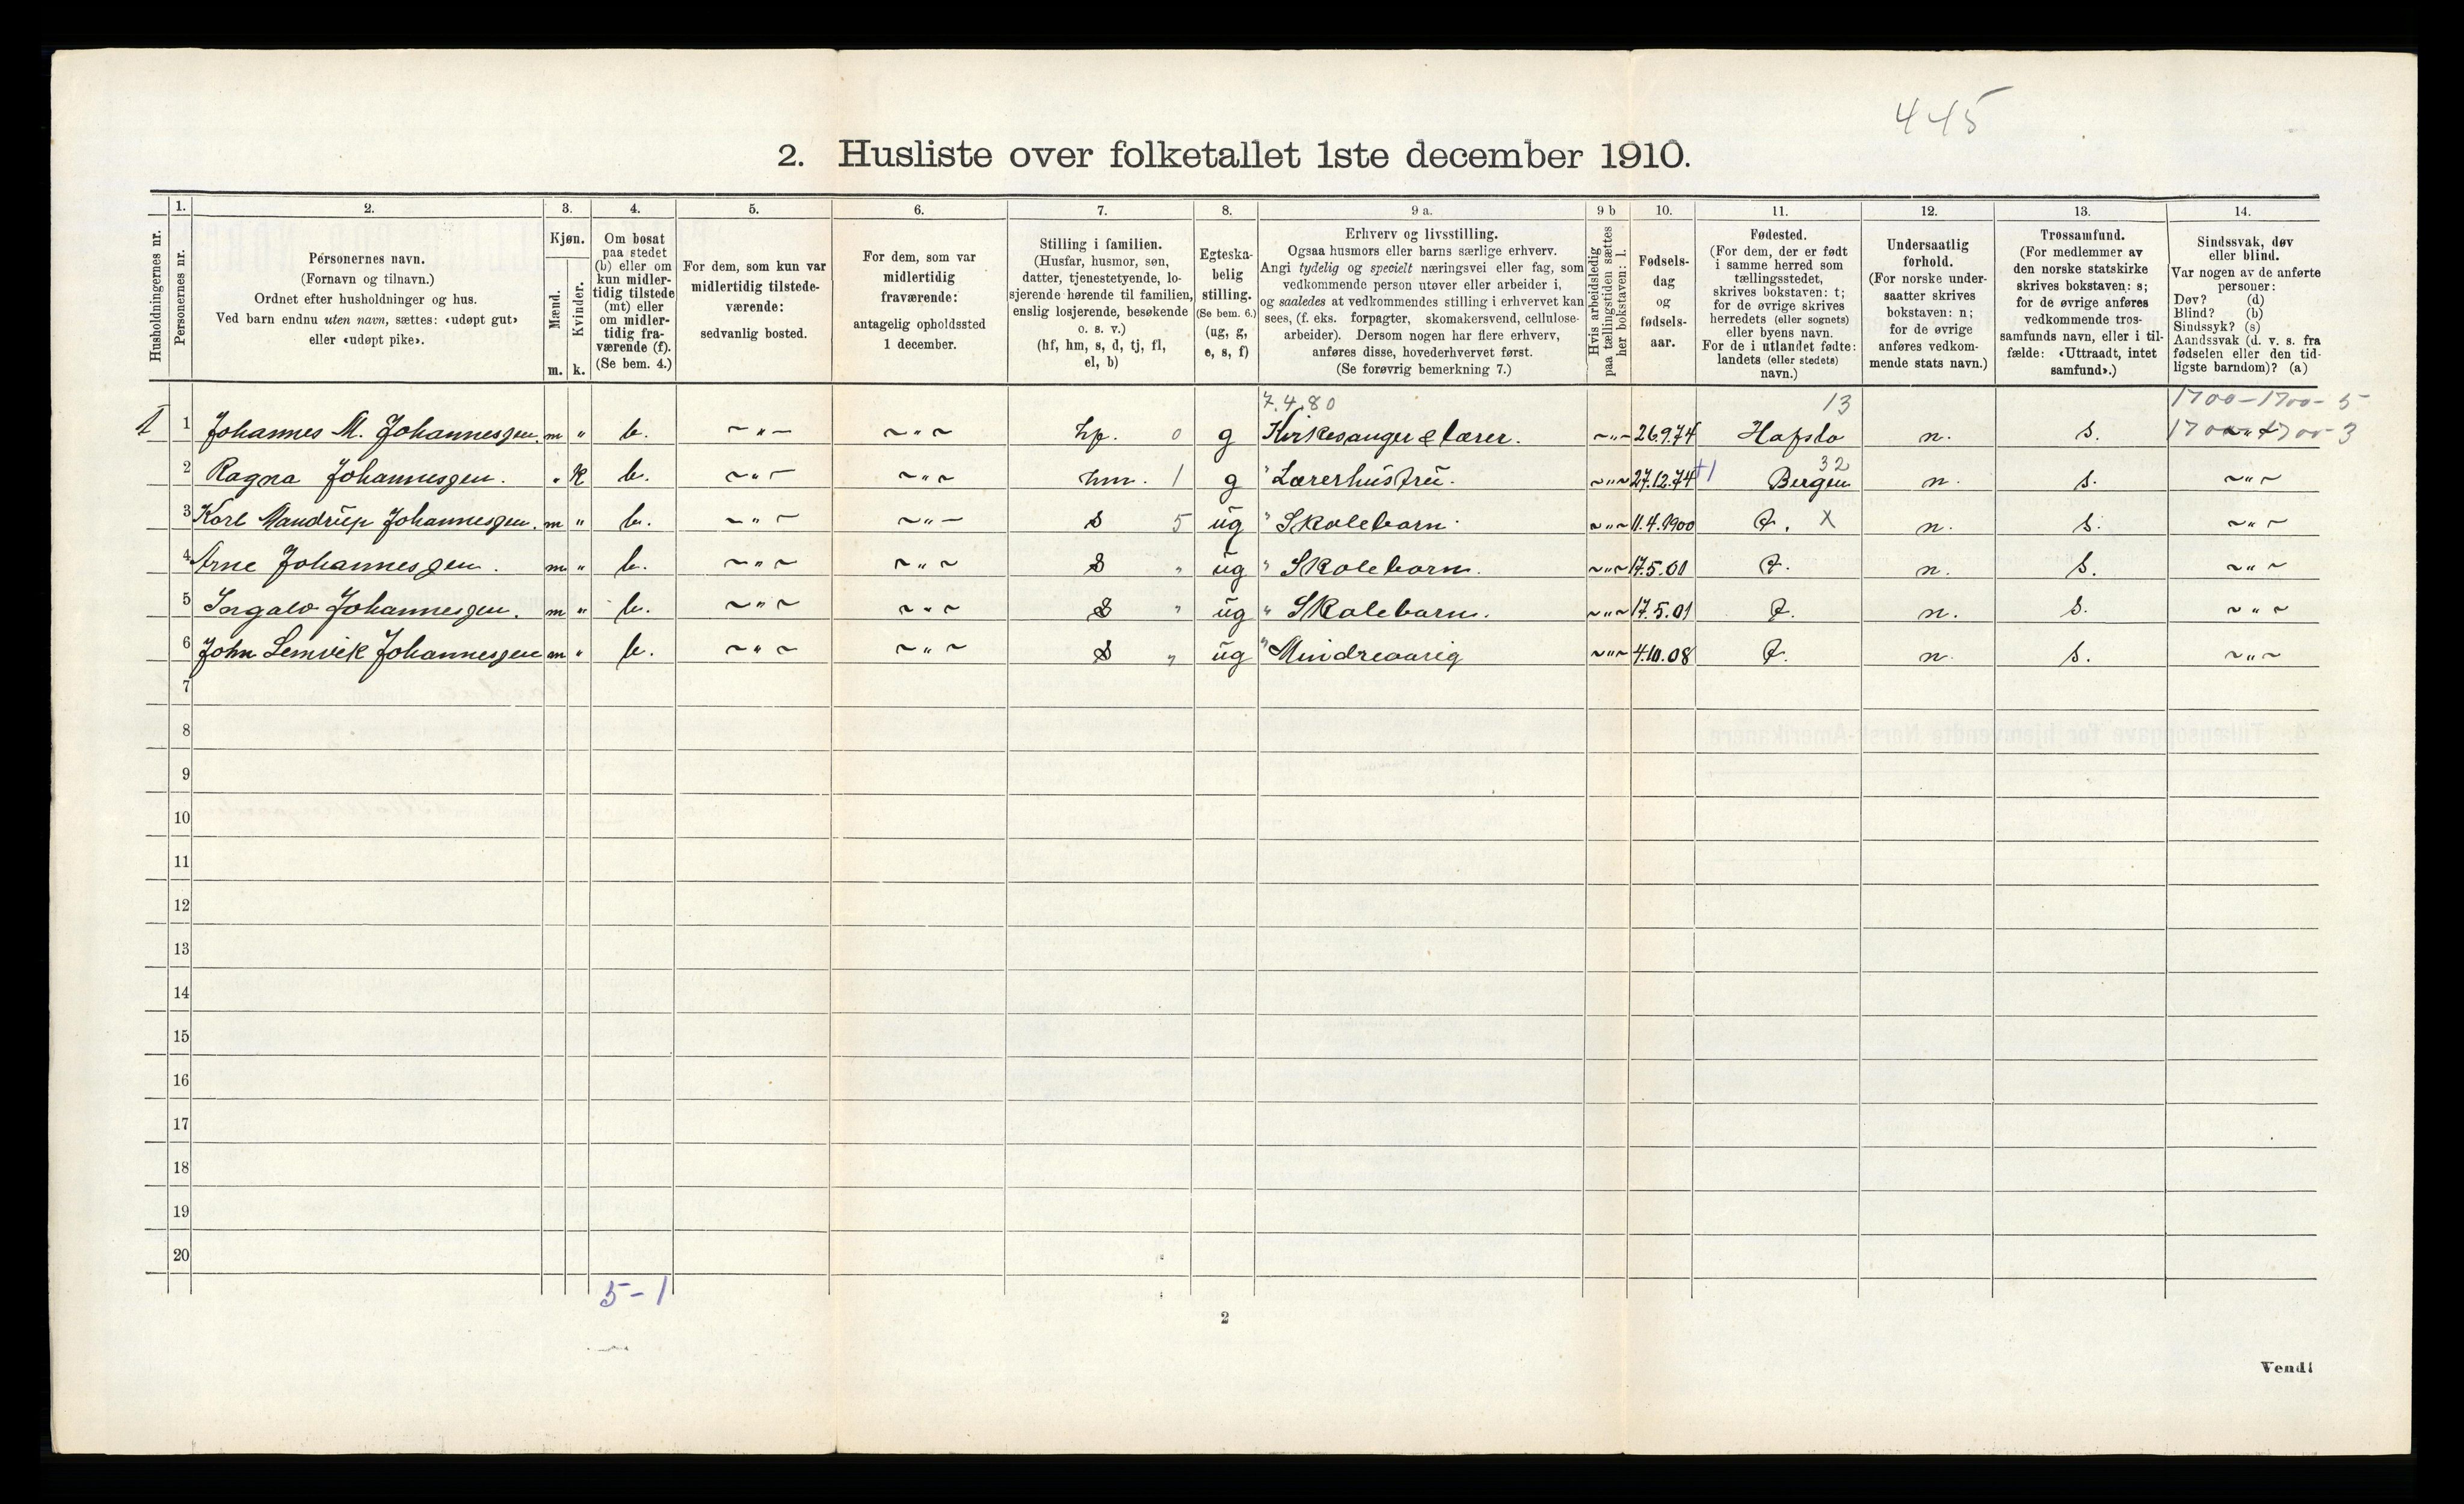 445
2. Husliste over folketallet 1ste december 1910.
Husholdningernes nr.
1.
Personernes nr.
2.
Personernes navn.
(Fornavn og tilnavn.)
Ordnet efter husholdninger og hus.
Ved barn endnu uten navn, sættes: «udøpt gut»
eller «udøpt pike».
3.
Kjøn.
Mænd.
Kvinder.
m. k.
4.
Om bosat
paa stedet
(b) eller om
kun midler-
tidig tilstede
(mt) eller
om midler-
tidig fra-
værende (f).
(Se bem. 4.)
5.
For dem, som kun var
midlertidig tilstede-
værende:
sedvanlig bosted.
6.
For dem, som var
midlertidig
fraværende:
antagelig opholdssted
1 december.
7.
Stilling i familien.
(Husfar, husmor, søn,
datter, tjenestetyende, lo-
sjerende hørende til familien,
enslig losjerende, besøkende
o. s. v.)
(hf, hm, s, d, tj, fl,
el, b)
8.
Egteska-
belig
stilling.
(Se bem. 6.)
(ug, g,
e, s, f)
9 a.
Erhverv og livsstilling.
Ogsaa husmors eller barns særlige erhverv.
Angi tydelig og specielt næringsvei eller fag, som
vedkommende person utøver eller arbeider i,
og saaledes at vedkommendes stilling i erhvervet kan
sees, (f. eks. forpagter, skomakersvend, cellulose-
arbeider). Dersom nogen har flere erhverv,
anføres disse, hovederhvervet først.
(Se forøvrig bemerkning 7.)
9 b
Hvis arbeidsledig
paa tællingstiden sættes
her bokstaven: l.
10.
Fødsels-
dag
og
fødsels-
aar.
11.
Fødested.
(For dem, der er født
i samme herred som
tællingsstedet,
skrives bokstaven: t;
for de øvrige skrives
herredets (eller sognets)
eller byens navn.
For de i utlandet fødte:
landets (eller stedets)
navn.)
12.
Undersaatlig
forhold.
(For norske under-
saatter skrives
bokstaven: n;
for de øvrige
anføres vedkom-
mende stats navn.)
13.
Trossamfund.
(For medlemmer av
den norske statskirke
skrives bokstaven: s;
for de øvrige anføres
vedkommende tros-
samfunds navn, eller i til-
fælde: «Uttraadt, intet
samfund».)
14.
Sindssvak, døv
eller blind.
Var nogen av de anførte
personer:
Døv? (d)
Blind? (b)
Sindssyk? (s)
Aandssvak (d. v. s. fra
fødselen eller den tid-
ligste barndom)? (a)
7.4.80 13 1700-1700-5
1 1 Johannes M. Johannesgen. m " b. ~"~ ~"~ hf. 0 g Kirkesanger & lærer. ~"~ 26.9.74 Hafslo n. s. 1700-1700-3
32
2 Ragna Johannesgen. " k b. ~"~ ~"~ hm. 1 g " Lærerhustru. ~"~ 27.12.74 +1 Bergen n. s. ~"~
3 Karl Mandrup Johannesgen. m " b. ~"~ ~"~ s 5 ug " Skolebarn. ~"~ 11.4.1900 t. X n. s. ~"~
4 Arne Johannesgen. m " b. ~"~ ~"~ s " ug " Skolebarn. ~"~ 17.5.01 t. n. s. ~"~
5 Ingalv Johannesgen. m " b. ~"~ ~"~ s " ug " Skolebarn. ~"~ 17.5.01 t. n. s. ~"~
6 John Lemvik Johannesgen m " b. ~"~ ~"~ s " ug " Mindreaarig ~"~ 4.10.08 t. n. s. ~"~
7
8
9
10
11
12
13
14
15
16
17
18
19
20
5-1
2
Vend!